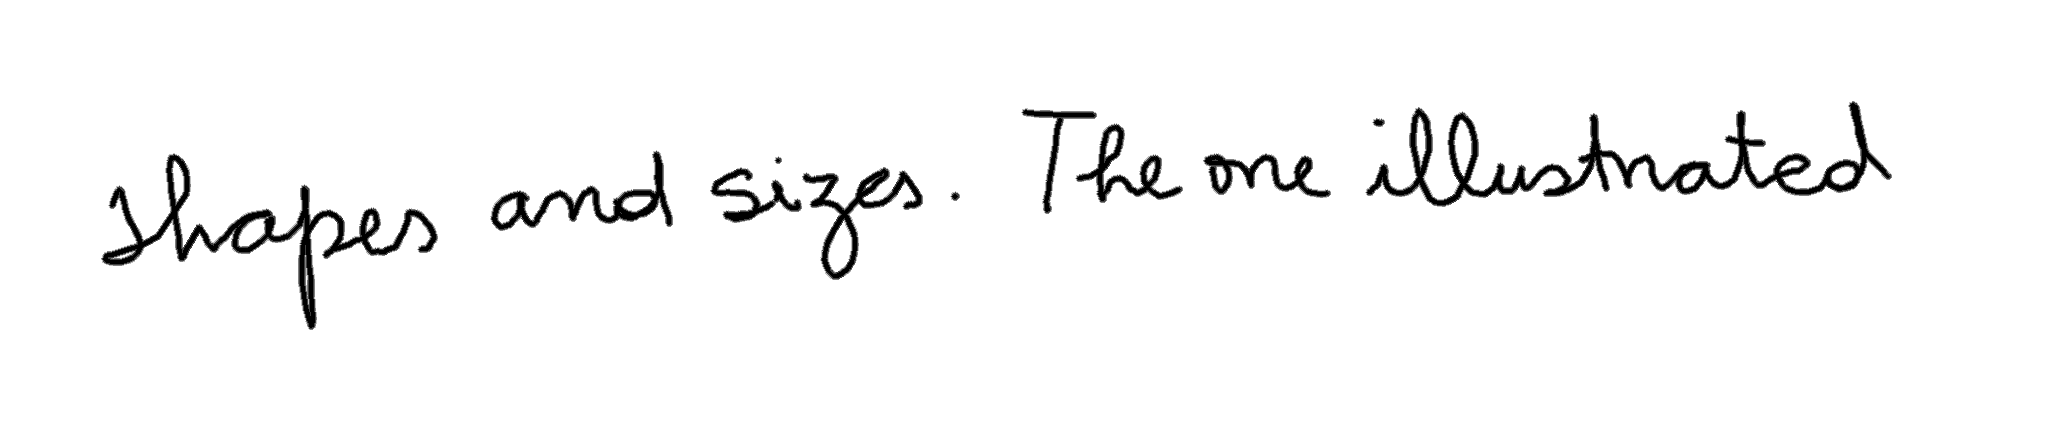 shapes and sizes. The one illustrated